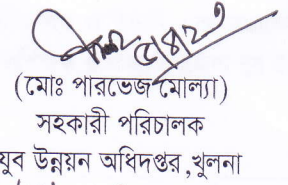 (মোঃ পারভেজ মোল্যা)
সহকারী পরিচালক
যুব উন্নয়ন অধিদপ্তর ,খুলনা